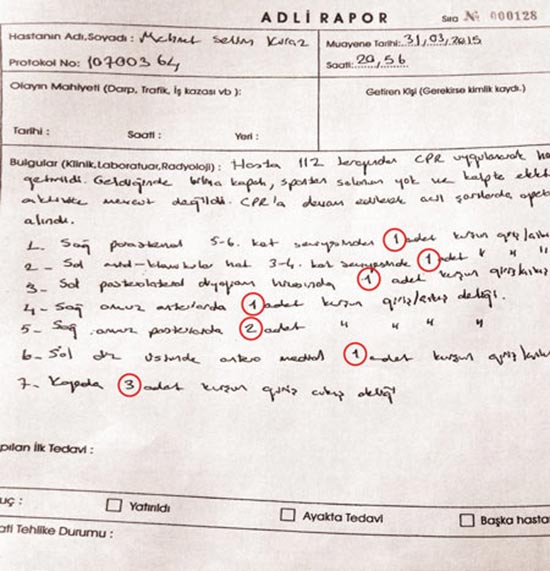 ADLİ RAPOR
Sıra № 000128
Hastanın Adı,Soyadı : Mehmet Selim Kiraz
Muayene Tarihi: 31,03,2015
Protokol No: 10700364
Saati: 20,56
Olayın Mahiyeti (Darp, Trafik, İş kazası vb ):
Getiren Kişi (Gerekirse kimlik kaydı.)
Tarihi : Saati : Yeri :
Bulgular (Klinik,Laboratuar,Radyoloji) : Hasta 112 tarafından CPR uygulanarak ha
getirildi. Geldiğinde bilinç kapalı, spontan solunum yok ve kalpte elekt
aktivite mevcut değildi. CPR'a devam edilerek acil şartlarda ope
alındı.
1. Sağ parasternal 5-6. kot seviyesinden 1 adet kurşun giriş/
2 - Sol mid-klavikular hat 3-4. kot seviyesinde 1 adet " " "
3 - Sol posterolateral diyafram hizasında 1 adet kurşun giriş/
4 - Sağ omuz anteriorda 1 adet kurşun giriş/çıkış deliği.
5 - Sağ omuz posteriorda 2 adet " " " "
6 - Sol diz üstünde antero medial 1 adet kurşun giriş/
7 - Kafada 3 adet kurşun giriş çıkış deliği
pılan İlk Tedavi :
uç : Yatırıldı Ayakta Tedavi Başka hasta
ati Tehlike Durumu :